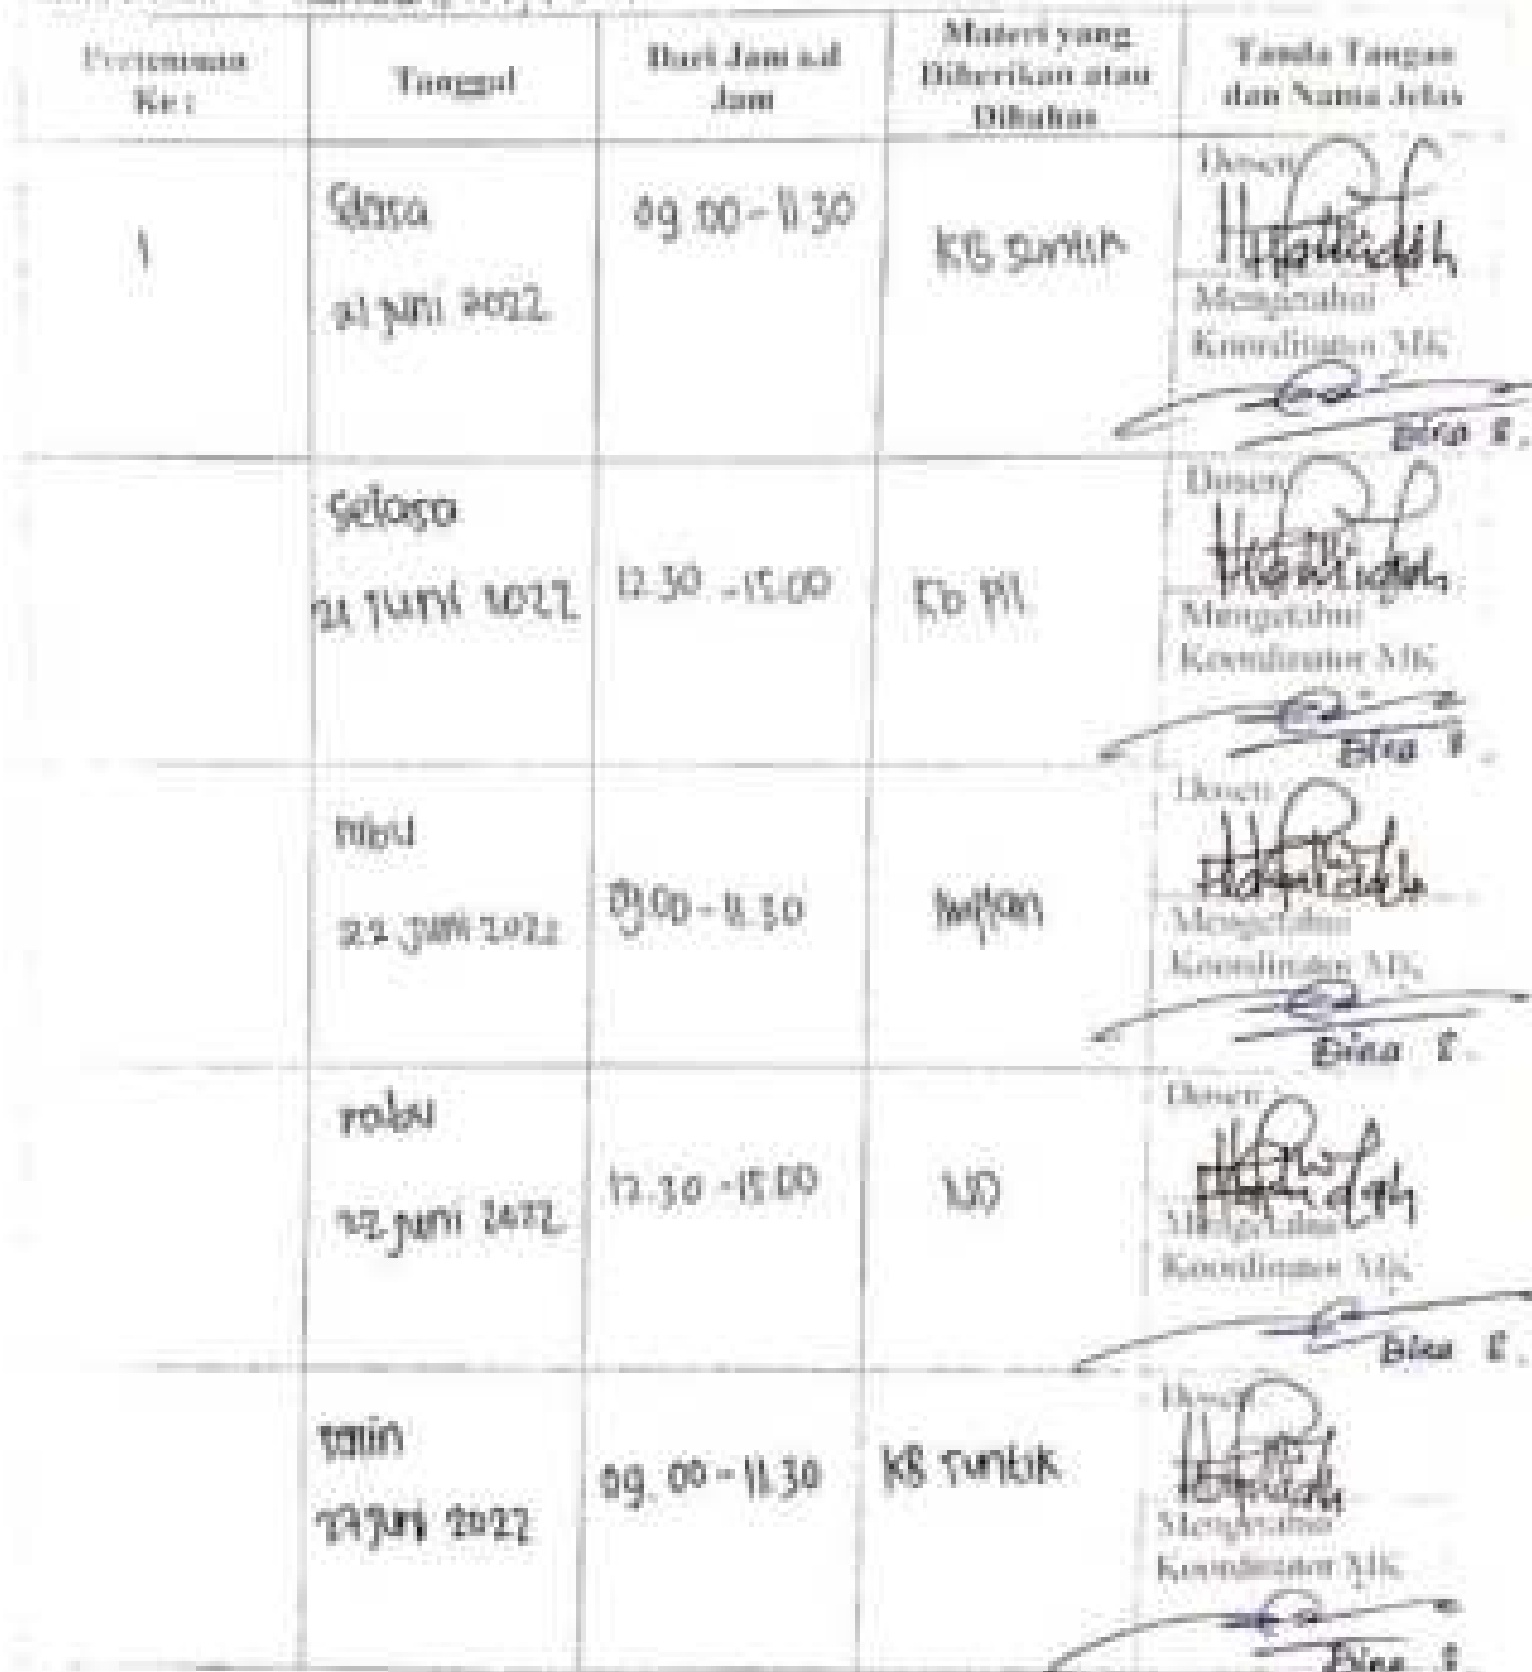 Pertemuan Ke :
Tanggal
Dari Jam s.d Jam
Materi yang Diberikan atau Dibahas
Tanda Tangan dan Nama Jelas
1
Selasa
21 juni 2022
09.00 - 11.30
KB suntik
Dosen
Hamidah
Mengetahui
Koordinator MK
Dina R.
Selasa
21 juni 2022
12.30 - 15.00
Kb pil
Dosen
Hamidah
Mengetahui
Koordinator MK
Dina R.
rabu
22 juni 2022
09.00 - 11.30
Implan
Dosen
Hamidah
Mengetahui
Koordinator MK
Dina R.
rabu
22 juni 2022
12.30 - 15.00
IUD
Dosen
Hamidah
Mengetahui
Koordinator MK
Dina R.
senin
27 juni 2022
09.00 - 11.30
KB suntik
Dosen
Hamidah
Mengetahui
Koordinator MK
Dina R.